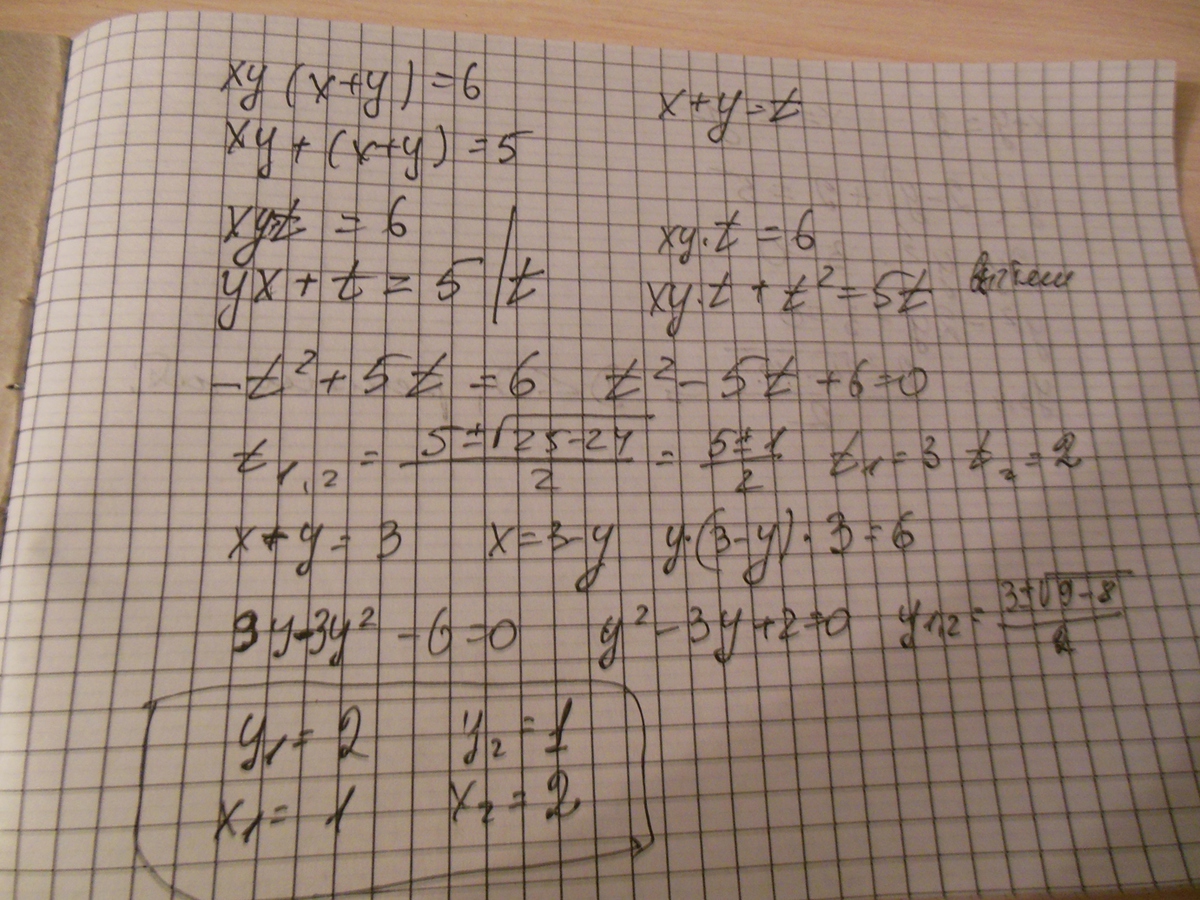 xy (x+y) = 6 x+y = t
xy + (x+y) = 5
xyt = 6 xy·t = 6
yx + t = 5 | t xy·t + t² = 5t
-t² + 5t = 6 t² - 5t + 6 = 0
t₁,₂ = (5±√(25-24))/2 = (5±1)/2 t₁ = 3 t₂ = 2
x+y = 3 x = 3-y y·(3-y)·3 = 6
9y-3y² - 6 = 0 y² - 3y + 2 = 0 y₁,₂ = (3±√(9-8))/2
y₁ = 2 y₂ = 1
x₁ = 1 x₂ = 2